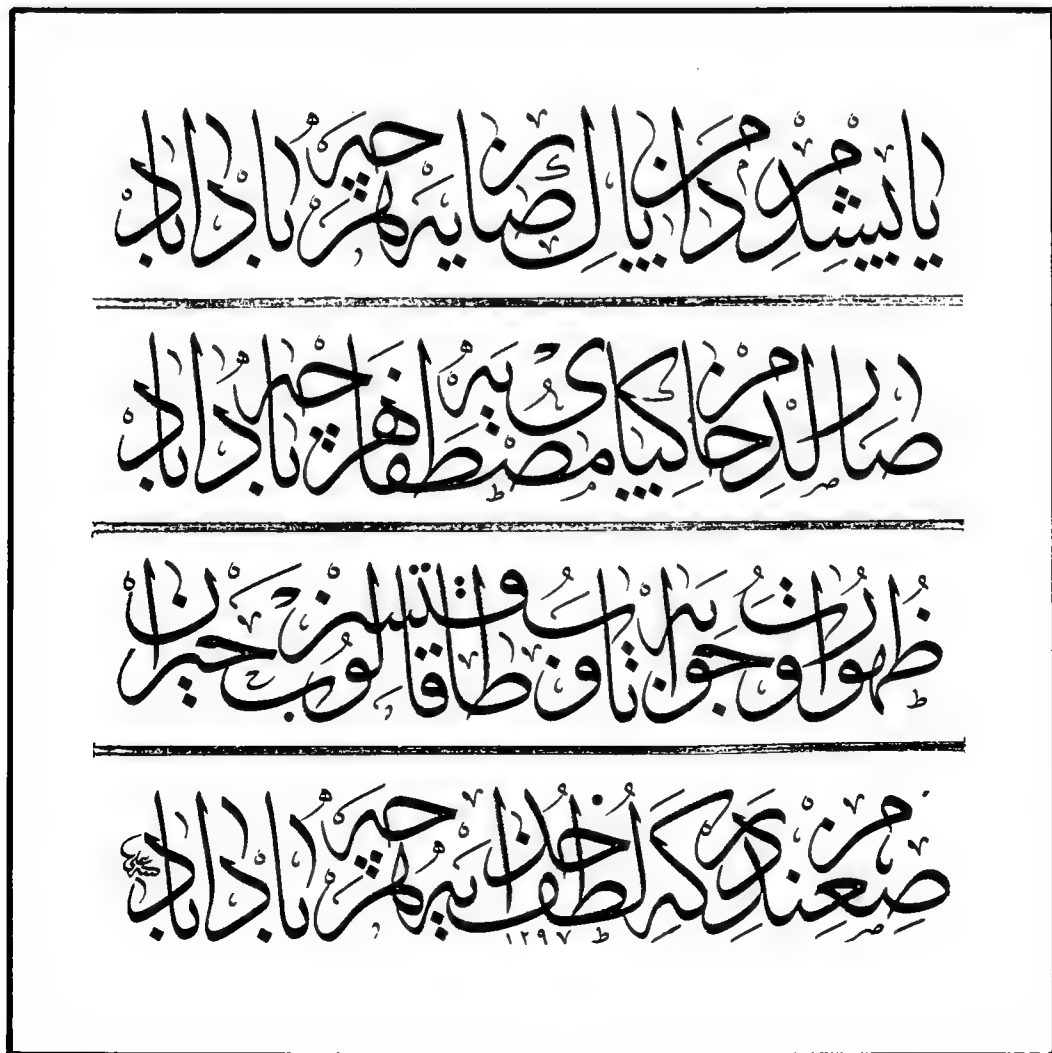 یاپیشدم دامن پاك رضایه هر چه باداباد
صارلدم خاکپای مصطفایه هر چه باداباد
ظهورات و جوابه تاب و طاقتسز قالوب حیران
صغندم درکه لطف خدایه هر چه باداباد
١٢٩٧